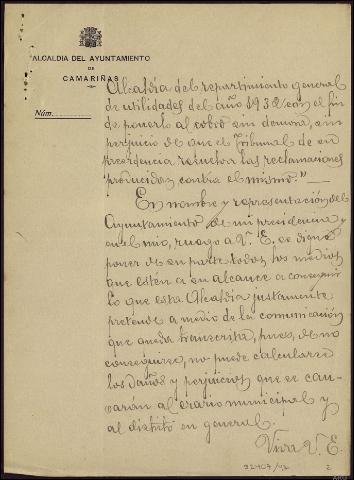 ALCALDIA DEL AYUNTAMIENTO
DE
CAMARIÑAS
Núm.
Alcaldía del repartimiento general
de utilidades del año 1932 con el fin
de ponerlo al cobro sin demora, sin
perjuicio de que el Tribunal de su
presidencia resuelva las reclamaciones
producidas contra el mismo."—
En nombre y representación del
Ayuntamiento de mi presidencia y
en el mio, ruego a V. E. se digne
poner de su parte todos los medios
que estén a su alcance a conseguir
lo que esta Alcaldía justamente
pretende a medio de la comunicación
que queda transcrita, pues, de no
conseguirse, no puede calcularse
los daños y perjuicios que se cau-
sarán al erario municipal y
al distrito en general.
Viva V. E.
2